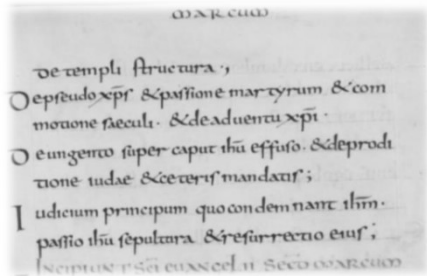 MARCUM
De templi structura.,
De pseudo xp̄s & passione martyrum & com
motione saeculi. & de adventu xp̄i.
De ungento super caput ihū effuso. & deprodi
tione iudae & ceteris mandatis;
Iudicium principum quo condemnant ihm̄.
passio ihū sepultura & resurrectio eius;
Incipiunt sc̄i euangelii secd̄ marcum